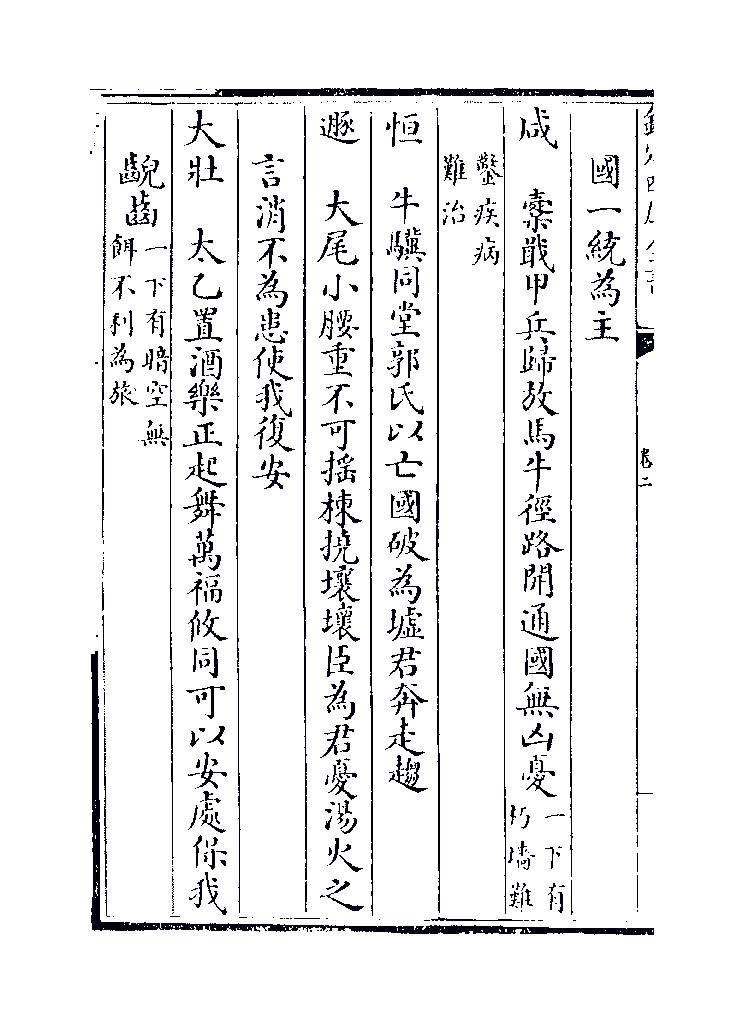 卷二
國一統為主
咸 櫜戢甲兵歸放馬牛徑路開通國無凶憂 一下有朽墻難
鑿疾病難治
恒 牛驥同堂郭氏以亡國破為墟君奔走趨
遯 大尾小腰重不可搖棟撓壞壞臣為君憂湯火之
言消不為患使我復安
大壯 太乙置酒樂正起舞萬福攸同可以安處保我
齯齒 一下有暗空無餌不利為旅